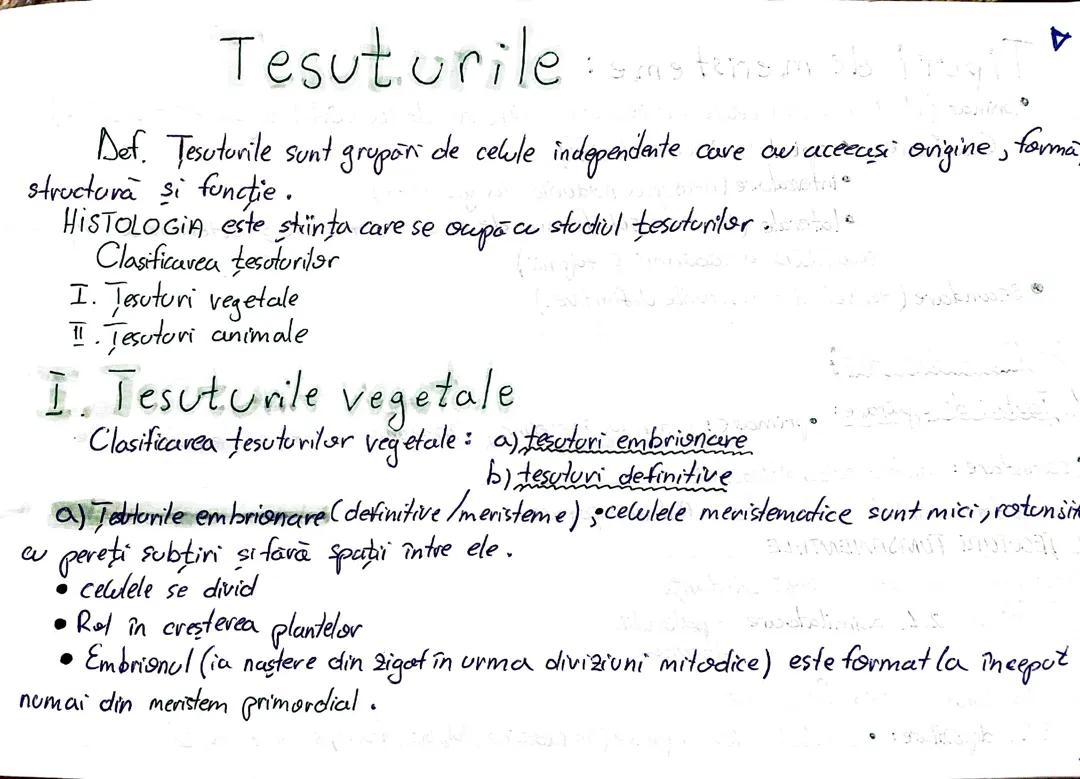 Tesuturile
Def. Țesuturile sunt grupări de celule independente care au aceeași origine, formă,
structură și funcție.
HISTOLOGIA este știința care se ocupă cu studiul țesuturilor.
Clasificarea țesuturilor
I. Țesuturi vegetale
II. Țesuturi animale
I. Tesuturile vegetale
Clasificarea țesuturilor vegetale: a) țesuturi embrionare
b) țesuturi definitive
a) embrionare (definitive/meristeme); celulele meristematice sunt mici,
cu pereți subțiri și fără spații între ele.
• celulele se divid
• Rol în creșterea plantelor
• Embrionul (ia naștere din zigot în urma diviziuni mitodice) este format la început
numai din meristem primordial.